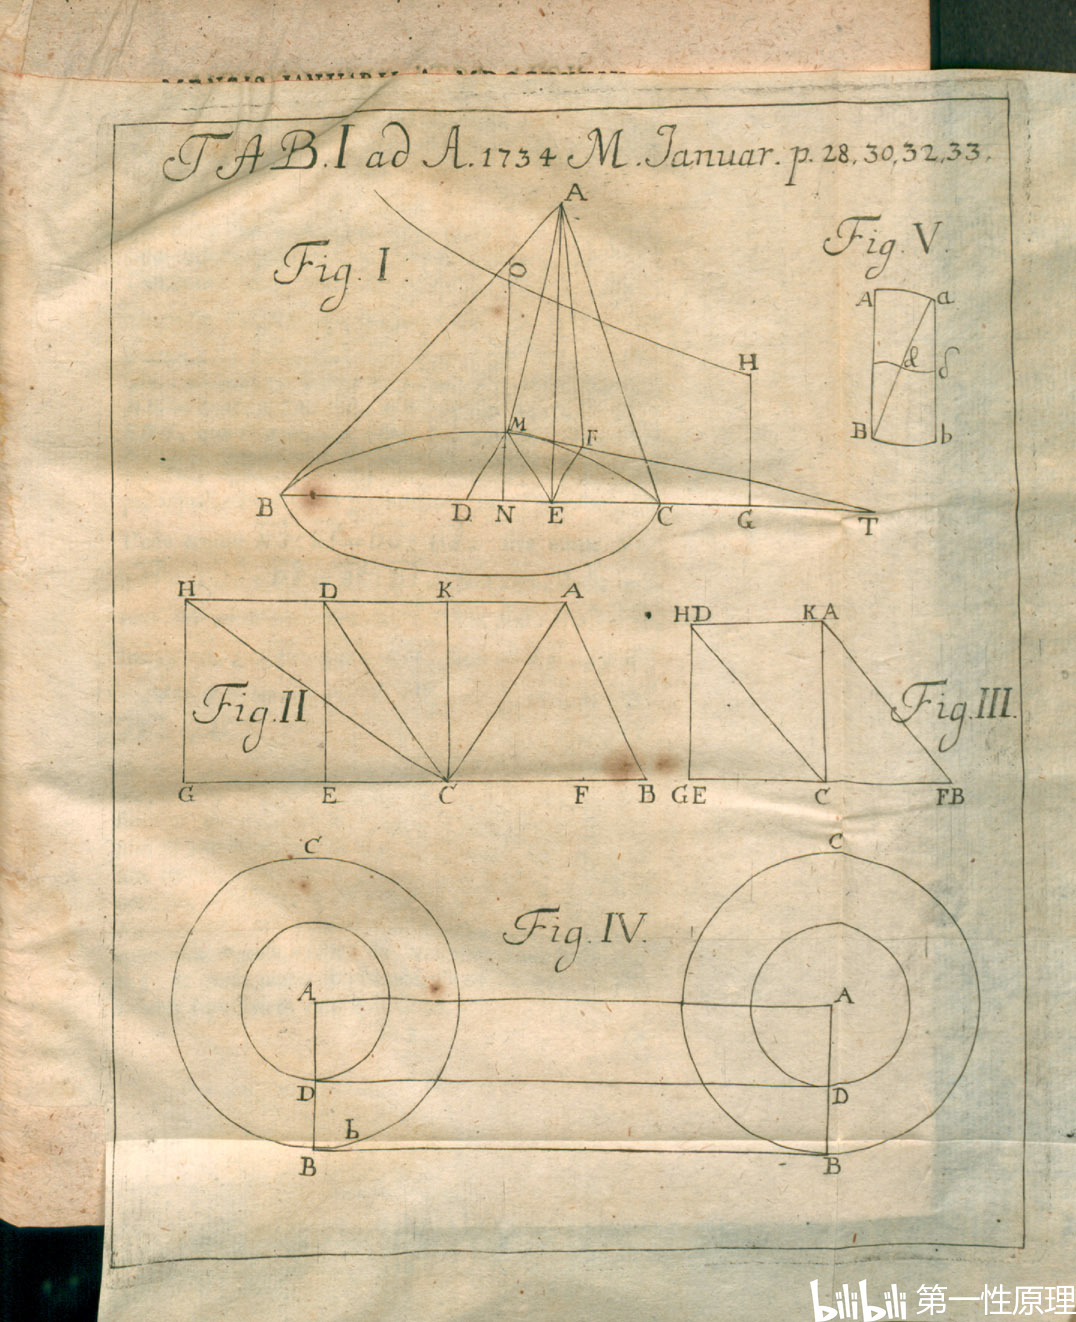 TAB. I ad A. 1734 M. Januar. p. 28, 30, 32, 33.
A
Fig. I.
O
Fig. V.
A a
H
α δ
M F
B b
B D N E C G T
H D K A
HD KA
Fig. II
Fig. III.
G E C F B
GE C FB
C C
Fig. IV.
A A
D D
b
B B
bilibili 第一性原理